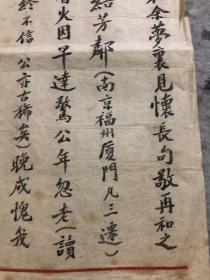 余夢襄見懷長句敬再和之
結芳鄰（南京福州廈門凡三遷）
火因早達驚公年忽老（讀
終不信 公亦古稀矣）晚成愧我